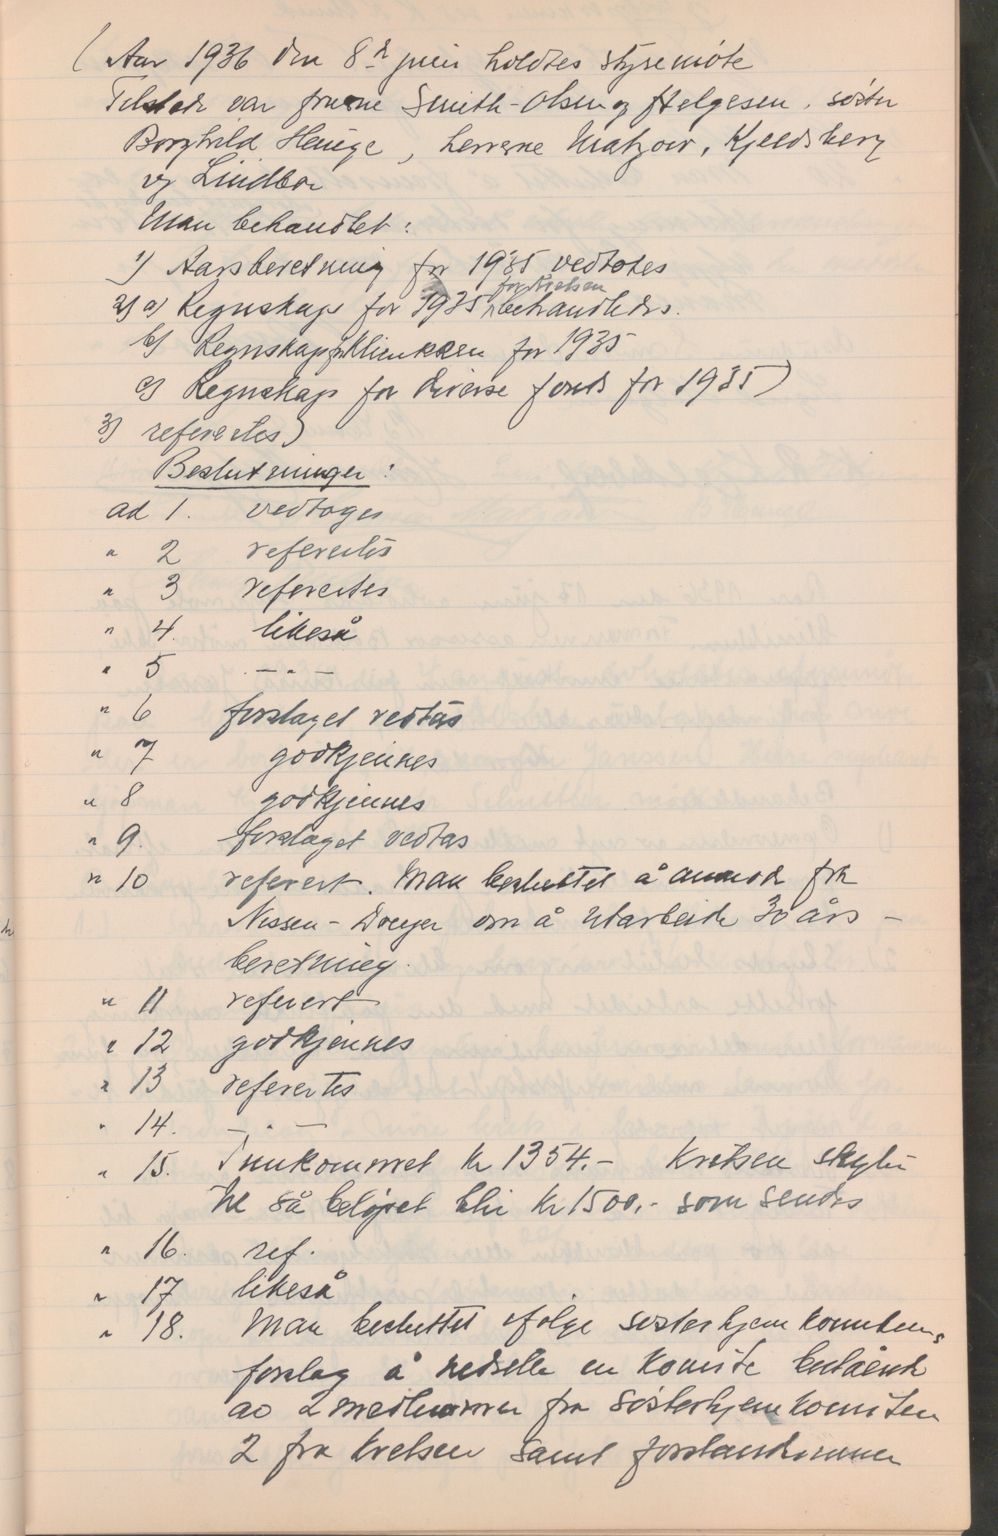 ( Aar 1936 den 8de juni holdtes styremöte
Tilstede var fruene Smith-Olsen og Helgesen, söster
Borghild Hauge, herrerne Matzow, Kjeldsberg
og Lindboe
Man behandlet:
1) Aarsberetning for 1935 vedtotes
for Nielsen
2) a) Regnskap for 1935 behandledes.
b) Regnskap Klinikken for 1935
c) Regnskap for diverse fonds for 1935)
3) referertes)
Beslutninger:
ad 1. vedtages
" 2 refertes
" 3 refertes
" 4. likeså
" 5 - " -
" 6 forslaget vedtas
" 7 godkjennes
" 8 godkjennes
" 9. forslaget vedtas
" 10 refert. Man besluttet å anmode frk
Nissen-Dreyer om å utarbeide 30 års-
beretning.
" 11 refert
" 12 godkjennes
" 13 refertes
" 14. - " -
" 15. Innkommet kr 1354.- Kretsen skyter
til så beløpet blir kr 1500.- som sendes
" 16. ref.
" 17 likeså
" 18. Man besluttet ifølge søsterhjemkomiteens
forslag å nedsette en komite bestående
av 2 medlemmer fra søsterhjemkomiteen
2 fra kretsen samt forstanderinnen